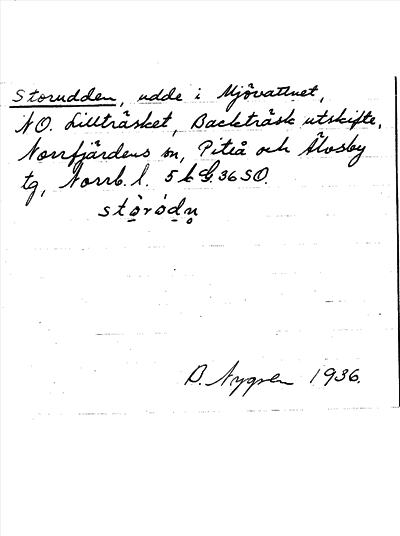 Storudden, udde i Mjövattnet,
NO. Lillträsket, Backträsk utskifte,
Norrfjärdens sn, Piteå och Älvsby
tg, Norrb. l. 5 b G. 36 SO.
stòródn̥
B. Nygren 1936.